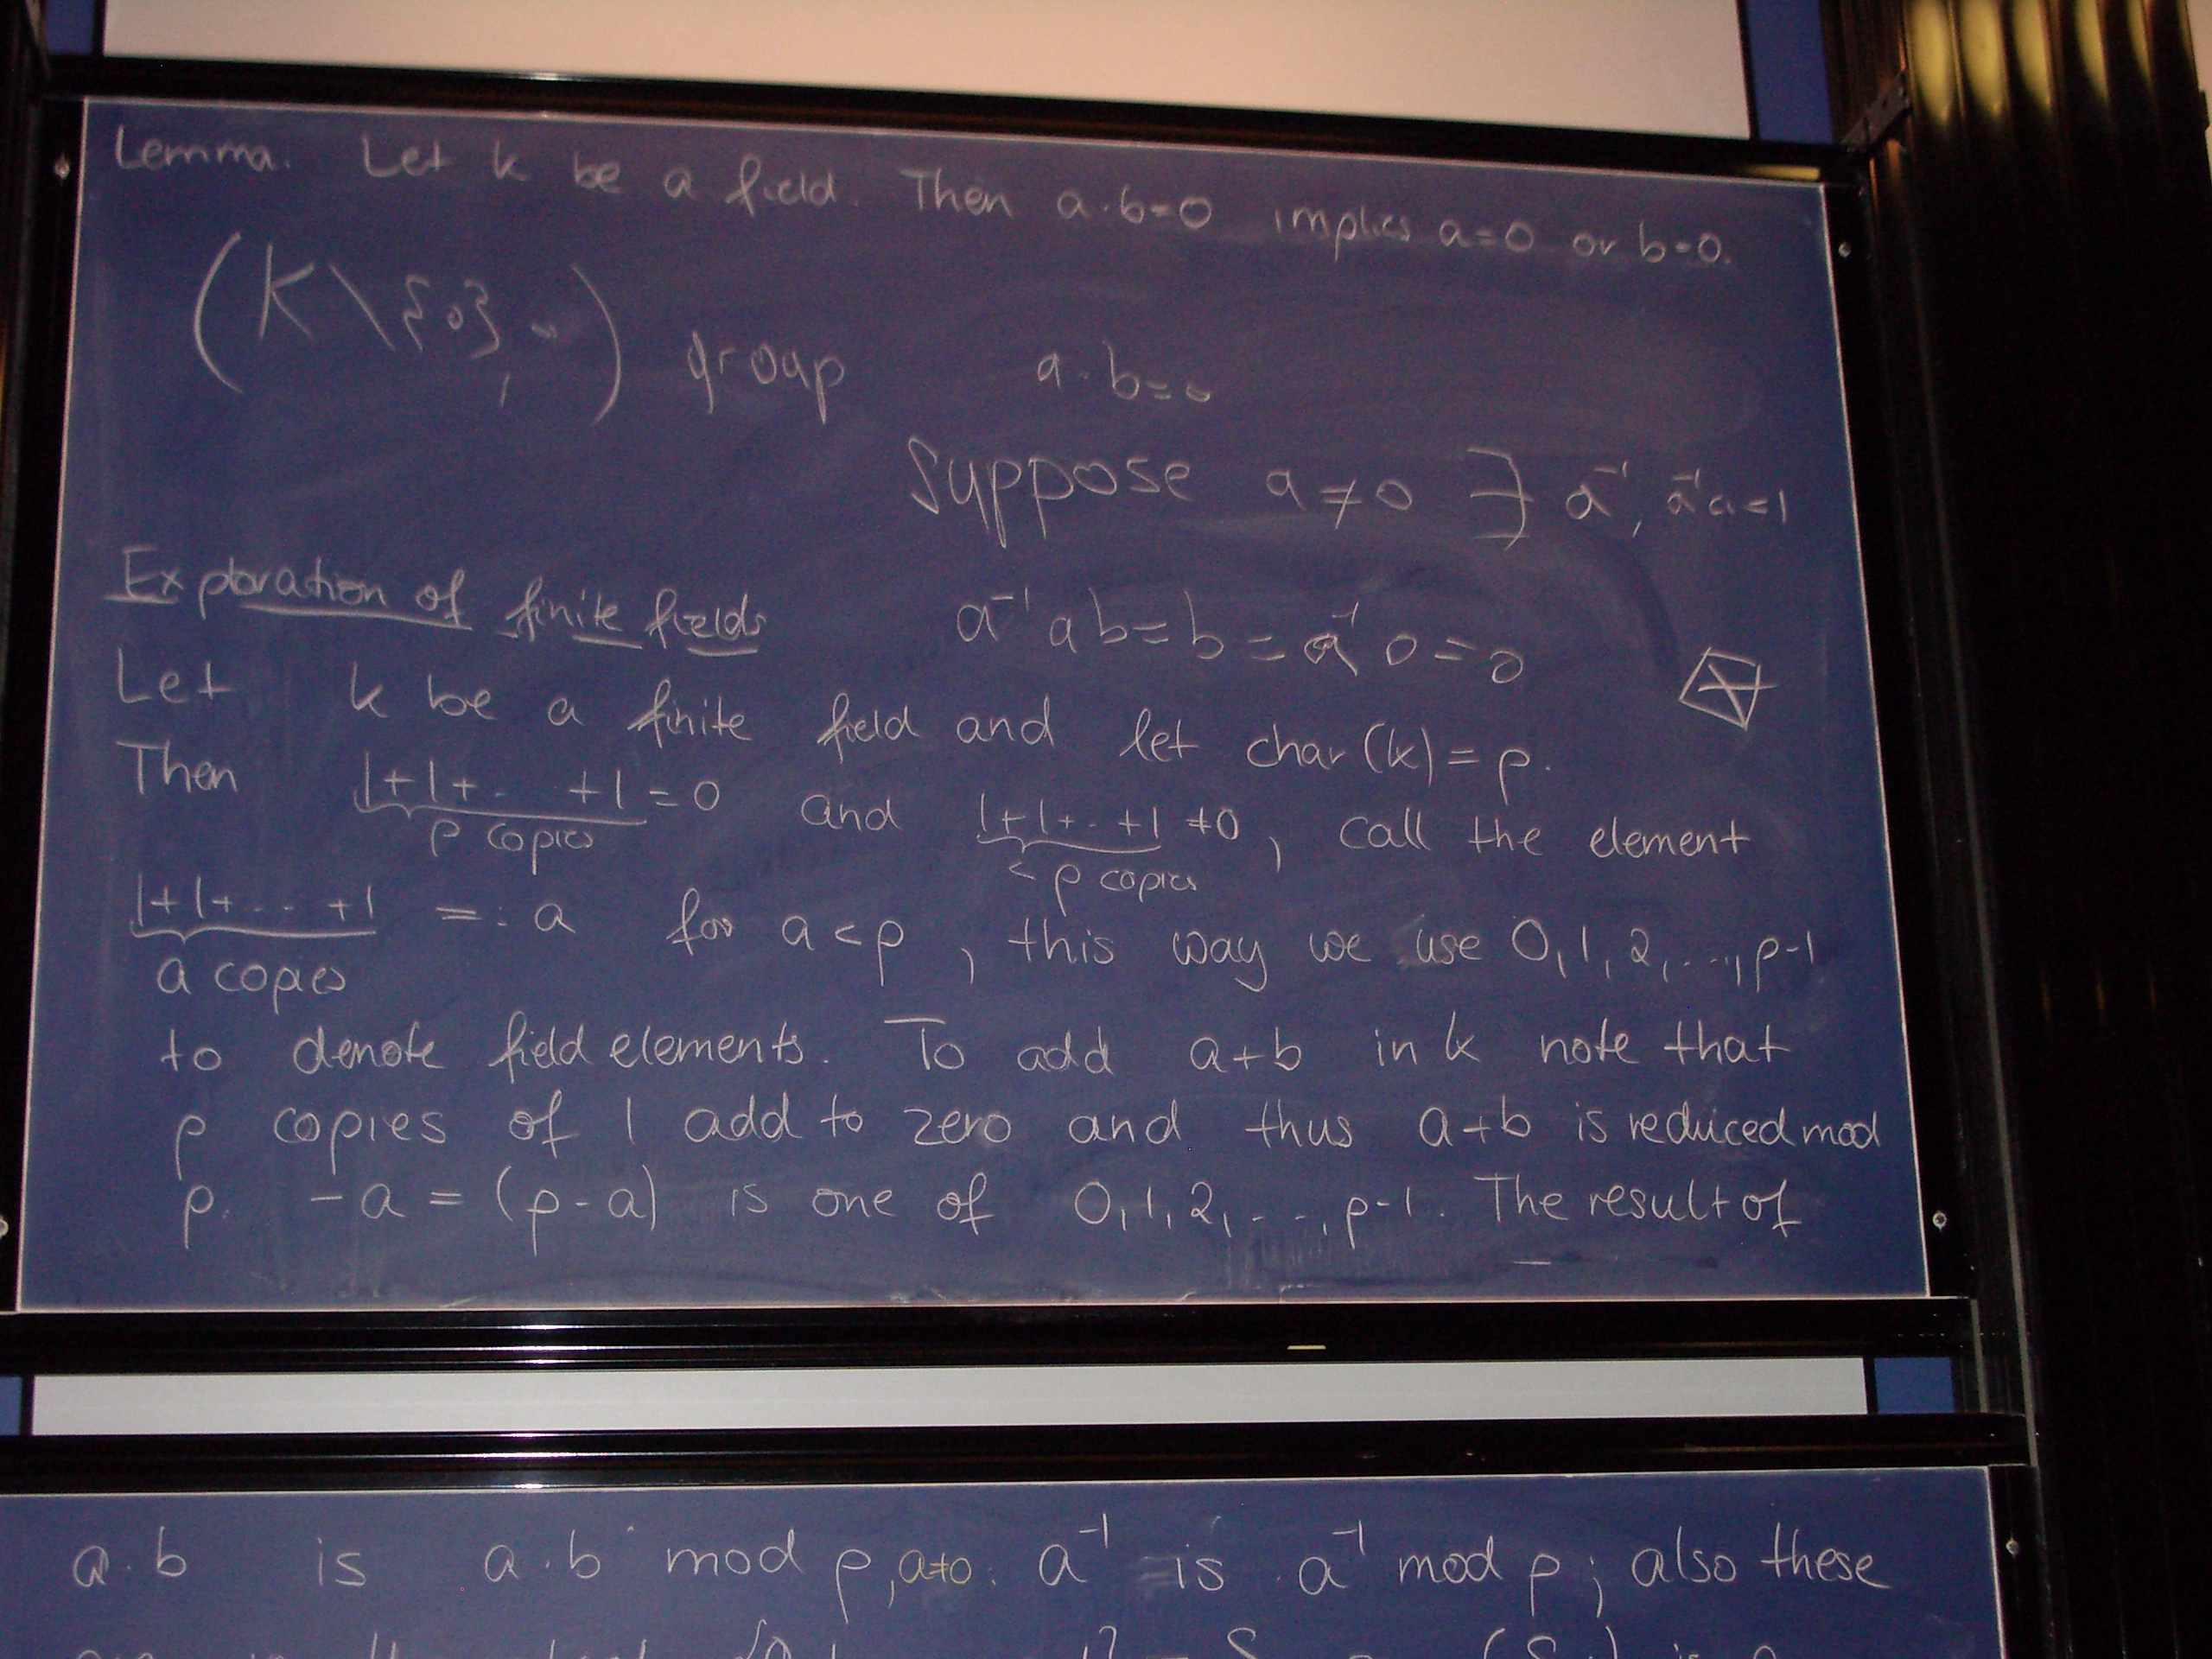 Lemma. Let k be a field. Then a·b=0 implies a=0 or b=0.
(K\{0}, ·) group a·b=0
Suppose a≠0 ∃ a⁻¹, a⁻¹a=1
Exploration of finite fields a⁻¹ab=b=a⁻¹0=0
Let k be a finite field and let char(k)=p.
Then 1+1+...+1=0 and 1+1+..+1≠0, call the element
p copies <p copies
1+1+...+1 =: a for a<p, this way we use 0,1,2,...,p-1
a copies
to denote field elements. To add a+b in k note that
p copies of 1 add to zero and thus a+b is reduced mod
p. -a=(p-a) is one of 0,1,2,...,p-1. The result of
a·b is a·b mod p, a≠0. a⁻¹ is a⁻¹ mod p; also these